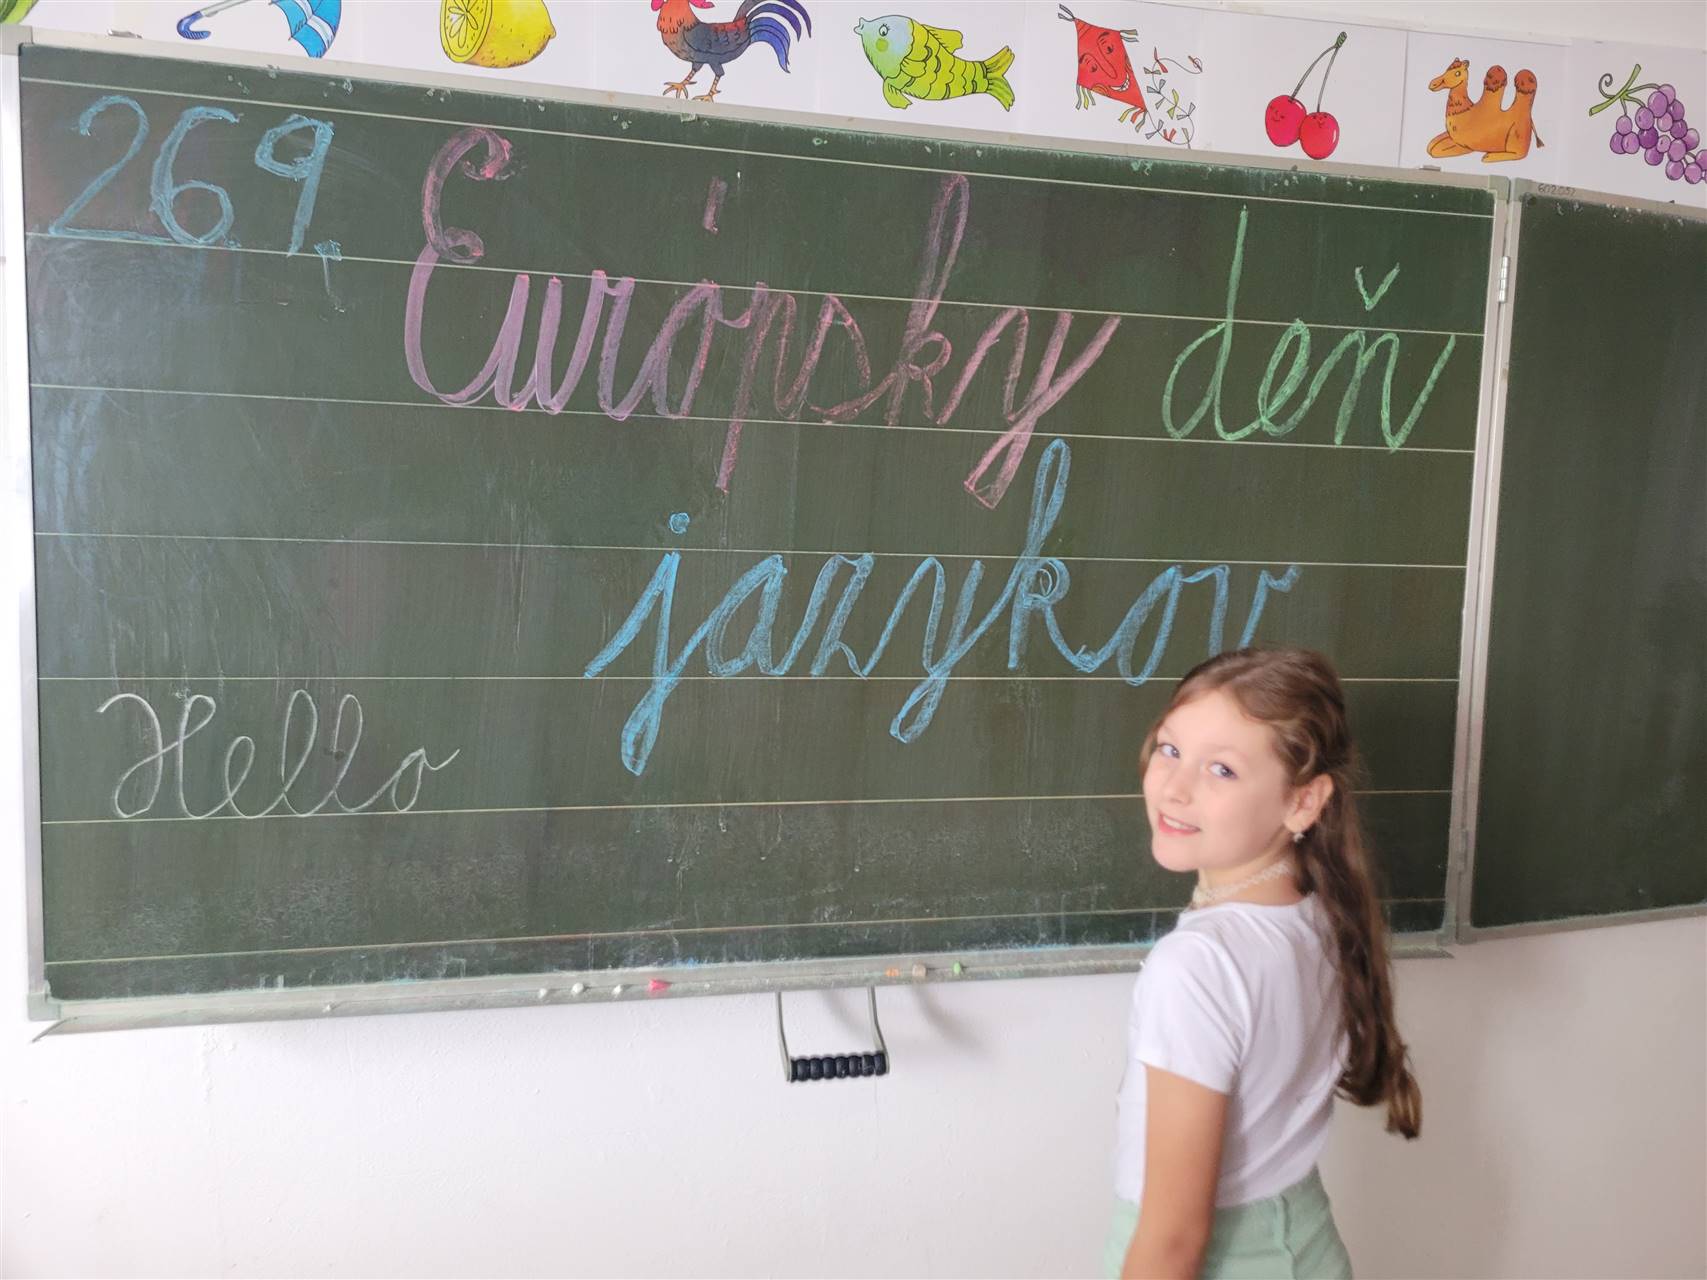 26.9. Európsky deň
jazykov
Hello
602057